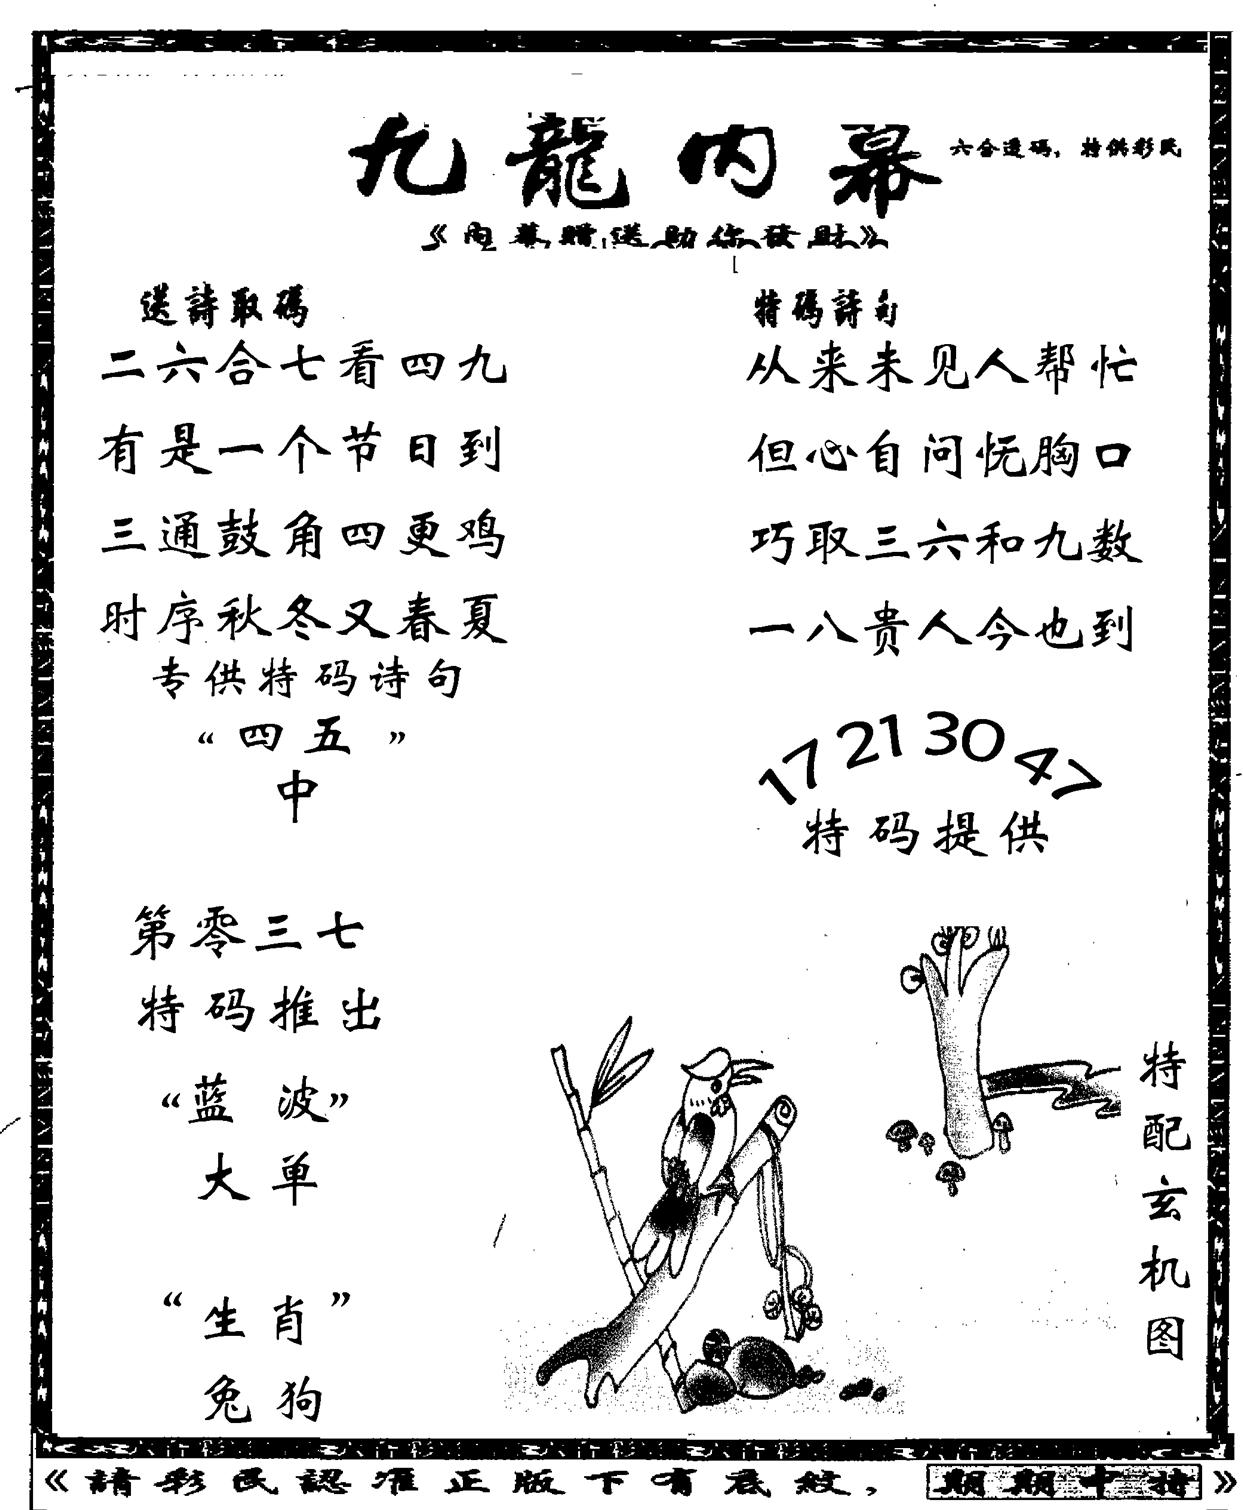 九龍内幕
六合透码，特供彩民
《内幕贈送助你發財》
送詩取碼
二六合七看四九
有是一个节日到
三通鼓角四更鸡
时序秋冬又春夏
专供特码诗句
“四五”
中
特碼詩句
从来未见人帮忙
但心自问怃胸口
巧取三六和九数
一八贵人今也到
17 21 30 47
特码提供
第零三七
特码推出
“蓝波”
大单
“生肖”
兔狗
特配玄机图
《請彩民認准正版下有底紋，期期中特》